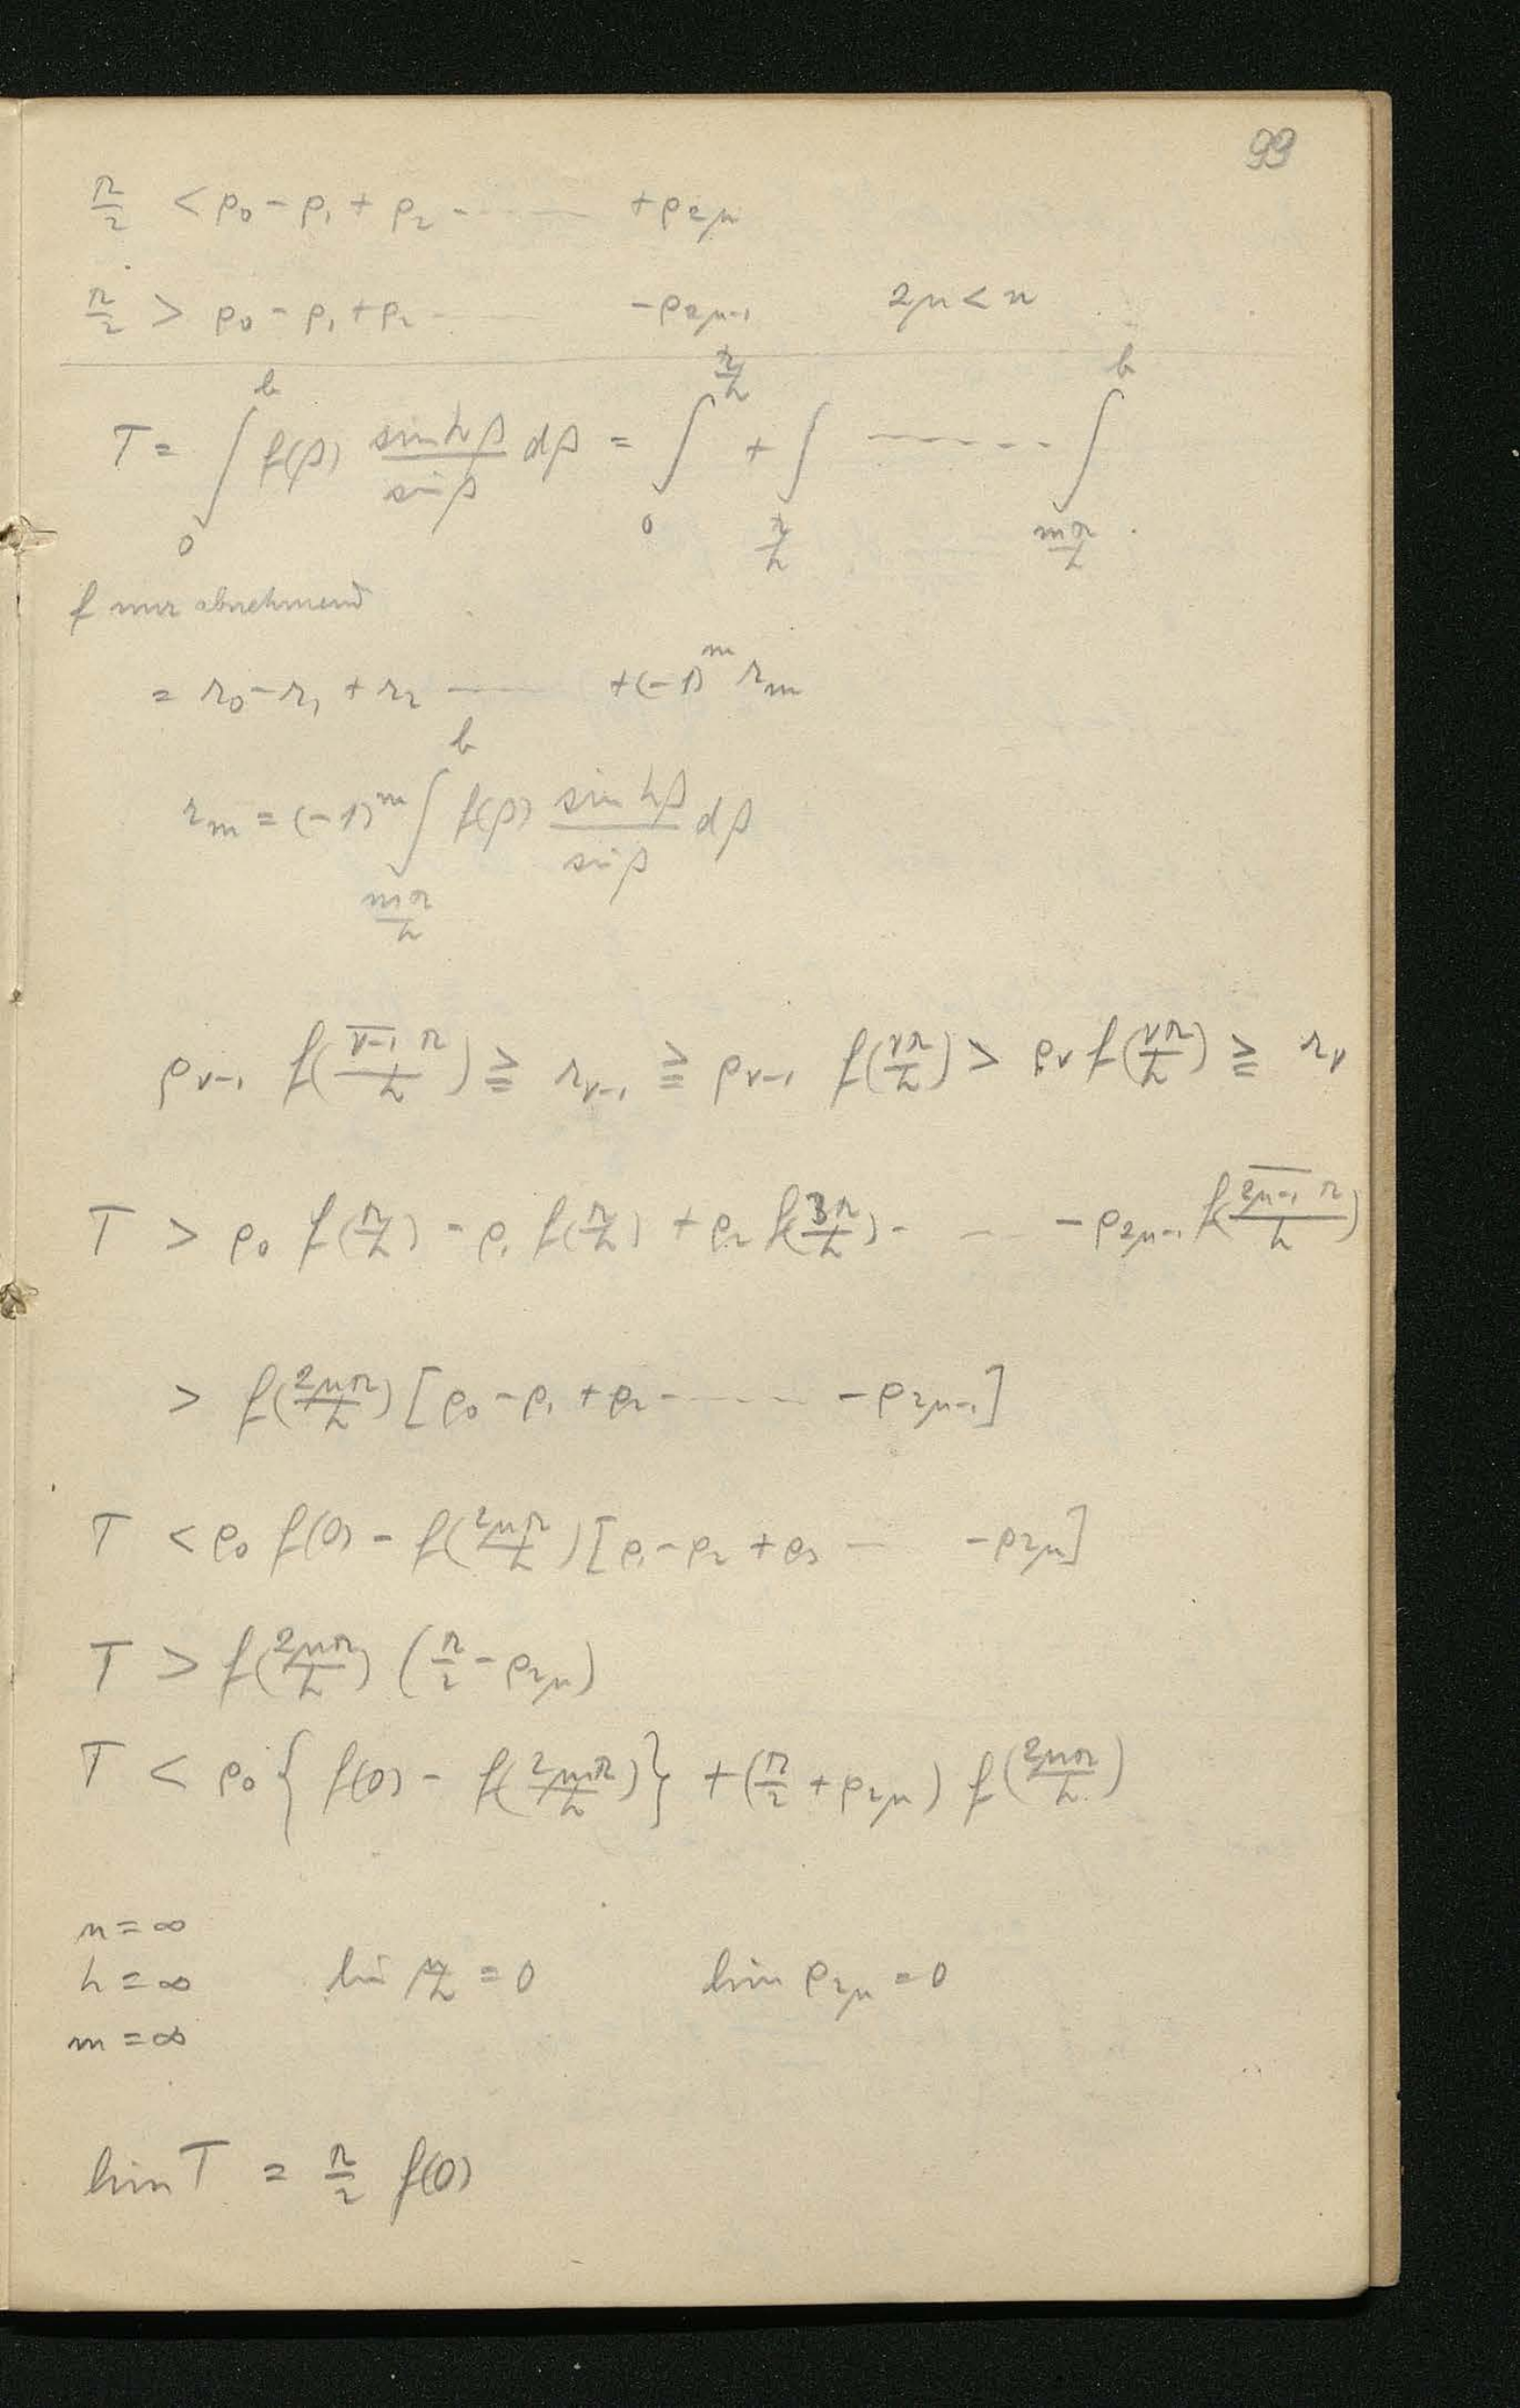 99
π/2 < ρ₀ - ρ₁ + ρ₂ - ------ + ρ₂μ
π/2 > ρ₀ - ρ₁ + ρ₂ ------ - ρ₂μ₋₁ 2μ < n
T = ∫₀^b f(β) (sin hβ / sin β) dβ = ∫₀^(π/h) + ∫_(π/h) ------- ∫_(mπ/h)^b
f nur abnehmend
= r₀ - r₁ + r₂ ------ + (-1)^m r_m
r_m = (-1)^m ∫_(mπ/h)^b f(β) (sin hβ / sin β) dβ
ρ_(ν-1) f((ν-1)π/h) ≧ r_(ν-1) ≧ ρ_(ν-1) f(νπ/h) > ρ_ν f(νπ/h) ≧ r_ν
T > ρ₀ f(π/h) - ρ₁ f(π/h) + ρ₂ f(3π/h) - ---- - ρ₂μ₋₁ f((2μ-1)π/h)
> f(2μπ/h) [ρ₀ - ρ₁ + ρ₂ ------- - ρ₂μ₋₁]
T < ρ₀ f(0) - f(2μπ/h) [ρ₁ - ρ₂ + ρ₃ -- - ρ₂μ]
T > f(2μπ/h) (π/2 - ρ₂μ)
T < ρ₀ { f(0) - f(2μπ/h) } + (π/2 + ρ₂μ) f(2μπ/h)
n = ∞
h = ∞ lim μ/h = 0 lim ρ₂μ = 0
m = ∞
lim T = π/2 f(0)